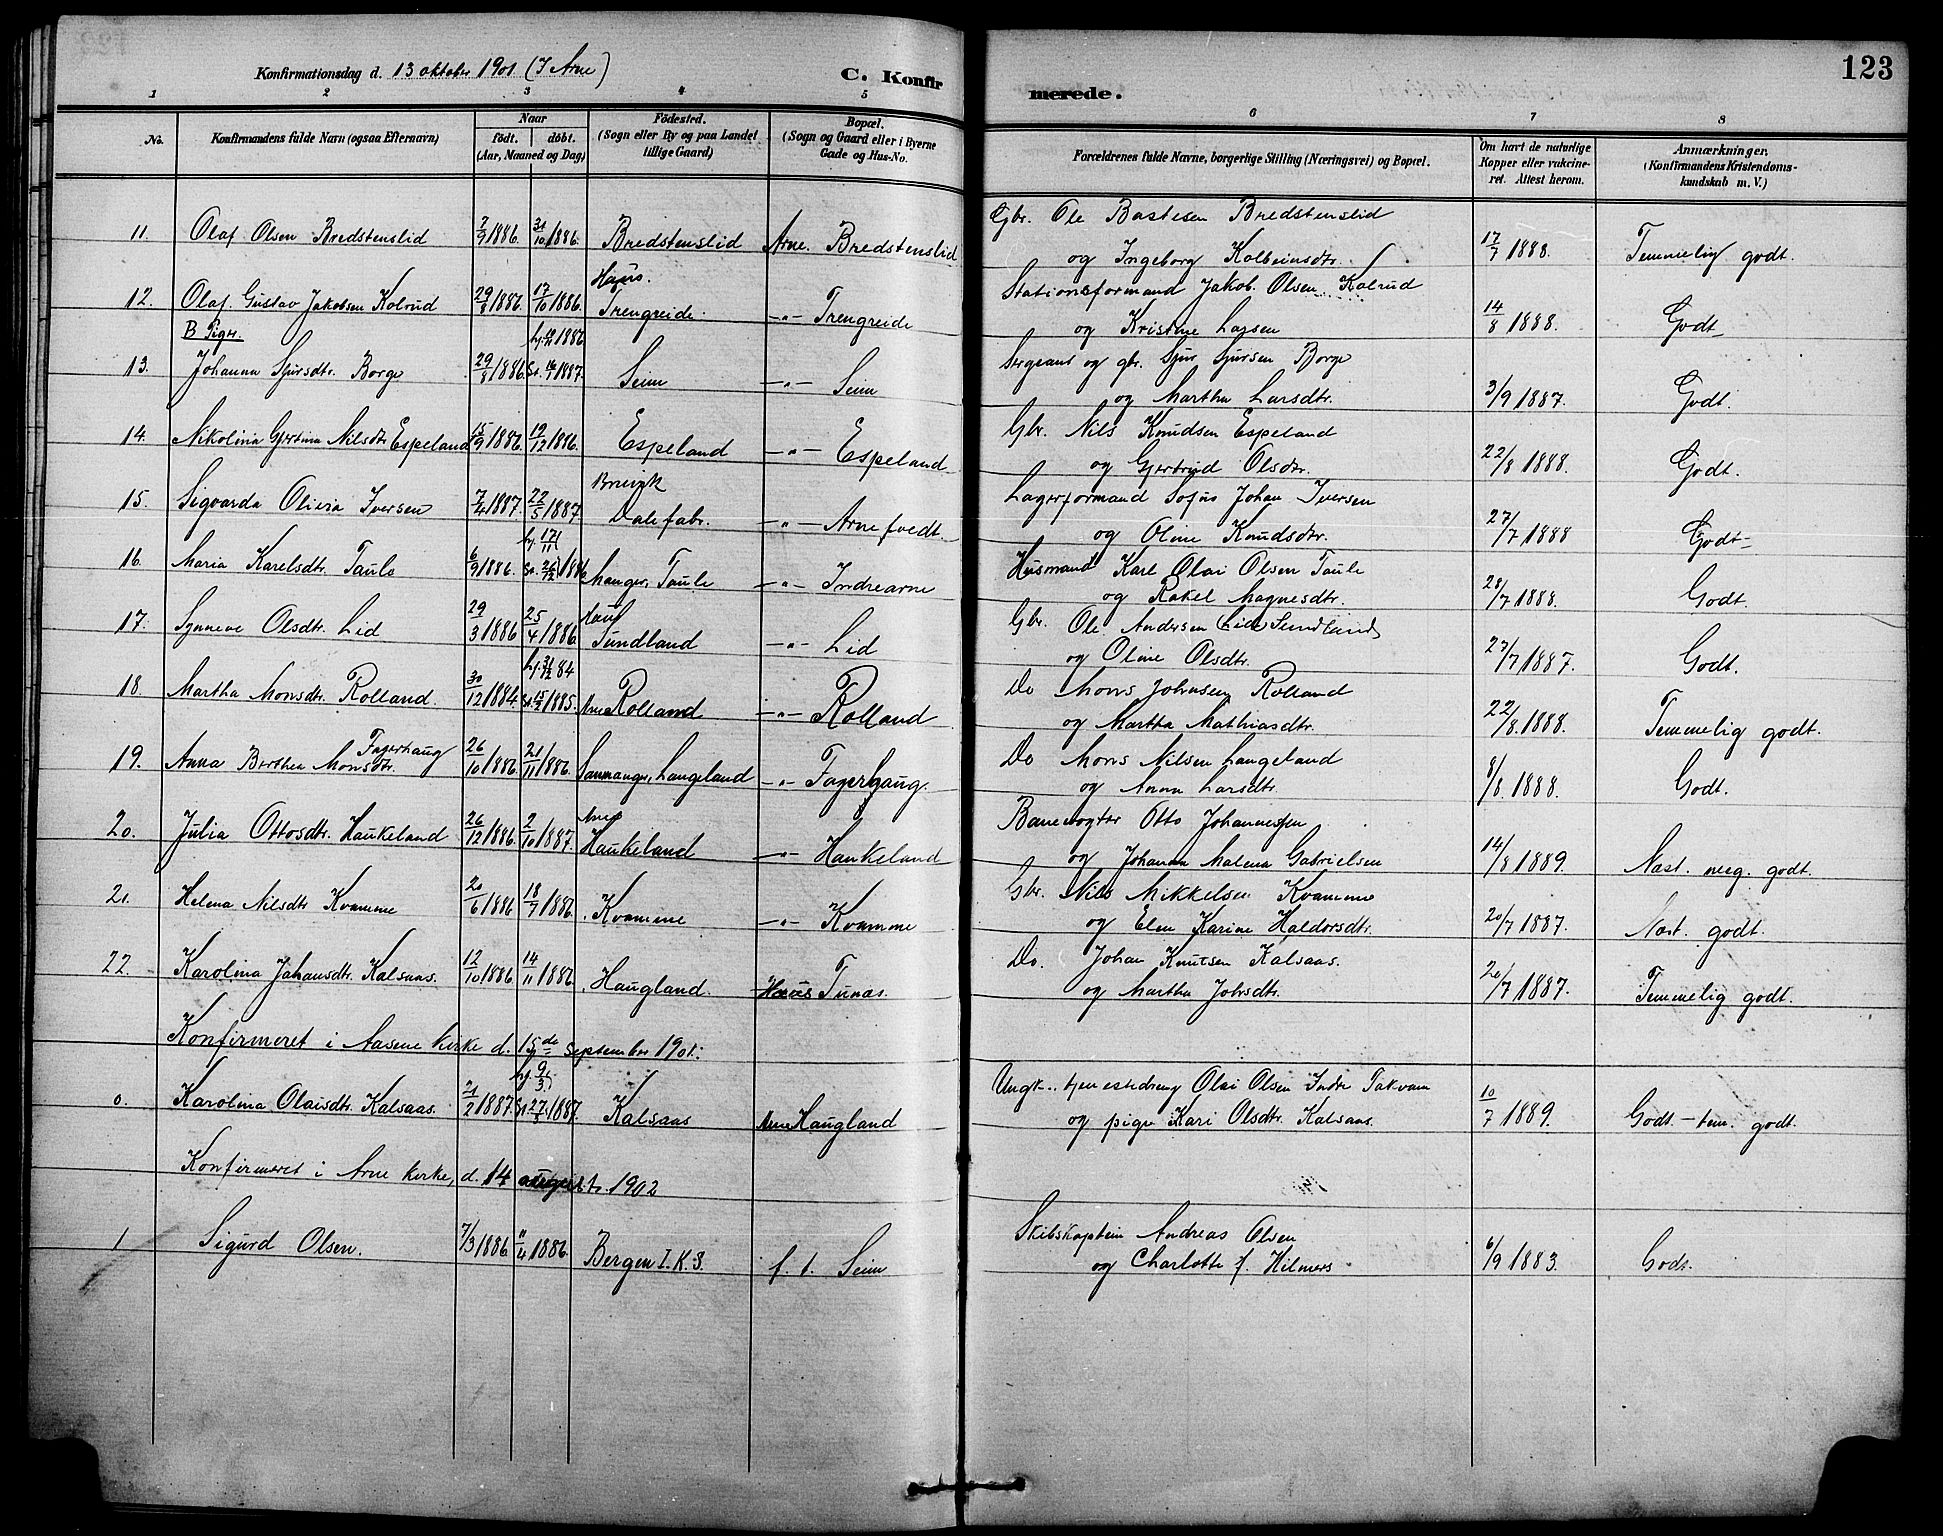 123
Konfirmationsdag d. 13 oktober 1901 (I Arne)
C. Konfirmerede.
1 2 3 4 5 6 7 8
No.
Konfirmandens fulde Navn (ogsaa Efternavn)
Naar
födt. döbt.
(Aar, Maaned og Dag)
Födested.
(Sogn eller By og paa Landet
tillige Gaard)
Bopæl.
(Sogn og Gaard eller i Byerne
Gade og Hus-No.
Forældrenes fulde Navne, borgerlige Stilling (Næringsvei) og Bopæl.
Om havt de naturlige
Kopper eller vakcine-
ret. Attest herom.
Anmærkninger.
(Konfirmandens Kristendoms-
kundskab m. V.)
11. Olaf Olsen Bredstenslid 7/9 1886. 31/10 1886. Bredstenslid Arne. Bredstenslid Gbr. Ole Bastesen Bredstenslid
og Ingeborg Kolbeinsdtr. 17/7 1888. Temmelig godt.
12. Olaf Gustav Jakobsen Kolrud 29/8 1886. 17/10 1886. Haus. Trengreide. -"- Trengreide Stationsformand Jakob Olsen Kolrud
og Kristine Larsen 14/8 1888. Godt
B Piger.
13. Johanna Sjursdtr. Borge 29/8 1886. 1886 1887. Seim -"- Seim Sergeant og gbr. Sjur Sjursen Borge
og Martha Larsdtr. 3/9 1887. Godt.
14. Nikolina Gjertina Nilsdtr Espeland 15/9 1886. 19/12 1886. Espeland -"- Espeland Gbr. Nils Knudsen Espeland
og Gjertrud Olsdtr. 22/8 1888. Godt.
15. Sigvarda Olivia Iversen 7/4 1887. 22/5 1887. Bruvik Dalefabr. -"- Arnefvedt. Lagerformand Sofus Johan Iversen
og Oline Knudsdtr. 27/7 1888 Godt
16. Maria Karelsdtr. Taule 6/9 1886. hj. 17/11 St. 26/12 1886 Manger, Taule -"- Indrearne Husmand Karl Olai Olsen Taule
og Rakel Magnesdtr. 28/7 1888. Godt.
17. Synneve Olsdtr. Lid 29/3 1886 25/4 1886. Haus Tundland -"- Lid Gbr. Ole Andersen Lid (Sundland)
og Oline Olsdtr. 27/7 1887. Godt.
18. Martha Monsdtr. Rolland. 30/12 1884. hj. 31/12 84 1885. Arne Rolland -"- Rolland Do Mons Johnsen Rolland
og Martha Mathiasdtr. 22/8. 1888. Temmelig godt.
19. Anna Berthea Monsdtr. Fagerhaug 26/10 1886 21/11 1886. Sammanger, Langeland -"- Fagerhaug. Do Mons Nilsen Langeland
og Anna Larsdtr. 8/8. 1888. Godt.
20. Julia Ottosdtr. Haukeland 26/12 1886. 2/10 1887. Arne Haukeland -"- Haukeland Banevogter Otto Johannessen
og Johanna Malena Gabrielsen 14/8 1889. Næst. meg. godt.
21. Helena Nilsdtr Kvamme 20/6 1886 18/7 1886. Kvamme -"- Kvamme Gbr. Nils Mikkelsen Kvamme
og Elen Karine Haldorsdtr. 20/7 1887. Næst. godt.
22. Karolina Johansdtr. Kalsaas. 12/10 1886 14/11 1886. Haugland. Haus Tunæs. Do. Johan Knutsen Kalsaas.
og Martha Johsdtr. 20/7 1887. Temmelig godt.
Konfirmeret i Aasene kirke d. 15de september 1901:
0. Karolina Olaisdtr. Kalsaas. 21/2 1887. hj. 9/3 St. 27/3 1887. Kalsaas Arne Haugland Ungk. tjenestedreng Olai Olsen Indre Takvam
og pige Kari Olsdtr. Kalsaas. 10/7 1889. Godt - tem. godt.
Konfirmeret i Arne kirke, d. 14 august 1902
1 Sigurd Olsen. 7/3 1886 11/4 1886. Bergen I. K. S. f. t. Seim Skibskaptein Andreas Olsen
og Charlotte f. Hilmers 6/9 1883. Godt.